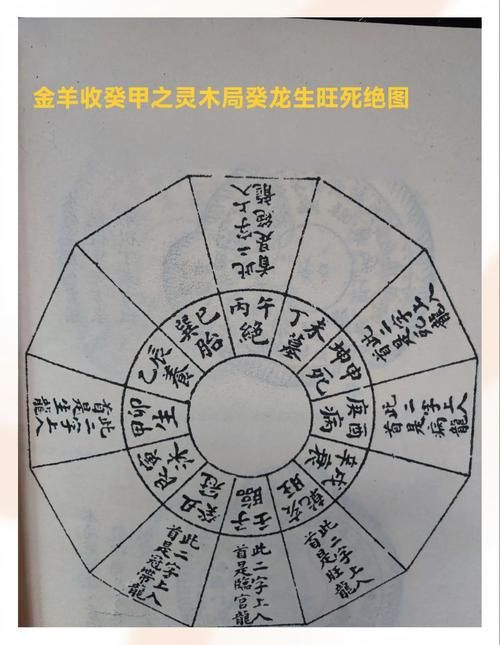 金羊收癸甲之灵木局癸龙生旺死绝图
此二字上入
首是絕龍
此二字上入
首是死龍
此二字上入
首是病龍
此二字上入
首是旺龍
此二字上入
首是臨官龍
此二字上入
首是冠帶龍
此二字上入
首是生龍
丙午
絕
丁未
墓
坤申
死
庚酉
病
辛戌
衰
乾亥
旺
壬子
臨
癸丑
冠
艮寅
沐
甲卯
生
乙辰
養
巽巳
胎